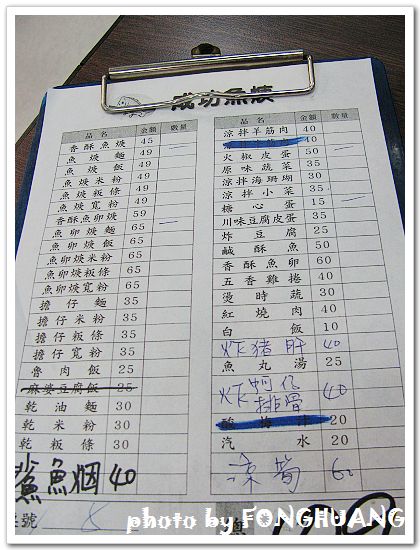 成功魚焿
品名 金額 數量
香酥魚焿 45
魚焿麵 49
魚焿飯 49
魚焿米粉 49
魚焿粄條 49
魚焿寬粉 49
香酥魚卵焿 59
魚卵焿麵 65
魚卵焿飯 65
魚卵焿米粉 65
魚卵焿粄條 65
魚卵焿寬粉 65
擔仔麵 35
擔仔米粉 35
擔仔粄條 35
擔仔寬粉 35
魯肉飯 25
麻婆豆腐飯 35
乾油麵 30
乾米粉 30
乾粄條 30
鯊魚烟 40
品名 金額 數量
涼拌羊筋肉 40
40
火椒皮蛋 50
原味蔬菜 35
涼拌海珊瑚 30
涼拌小菜 35
糖心蛋 15
川味豆腐皮蛋 35
炸豆腐 25
鹹酥魚 50
香酥魚卵 60
五香雞捲 40
燙時蔬 30
紅燒肉 40
白飯 10
炸豬肝 40
魚丸湯 25
炸蚵仔 排骨 40
酸梅汁 20
汽水 20
涼筍 60
號
photo by FONGHUANG